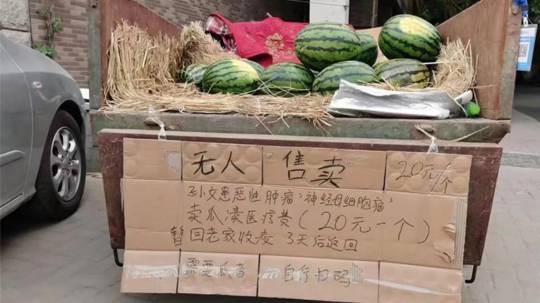 无人 售卖 20元/个
孙女患恶性肿瘤“神经母细胞瘤”
卖瓜凑医疗费(20元一个)
暂回老家收麦 3天后返回
需要瓜者 自行扫码